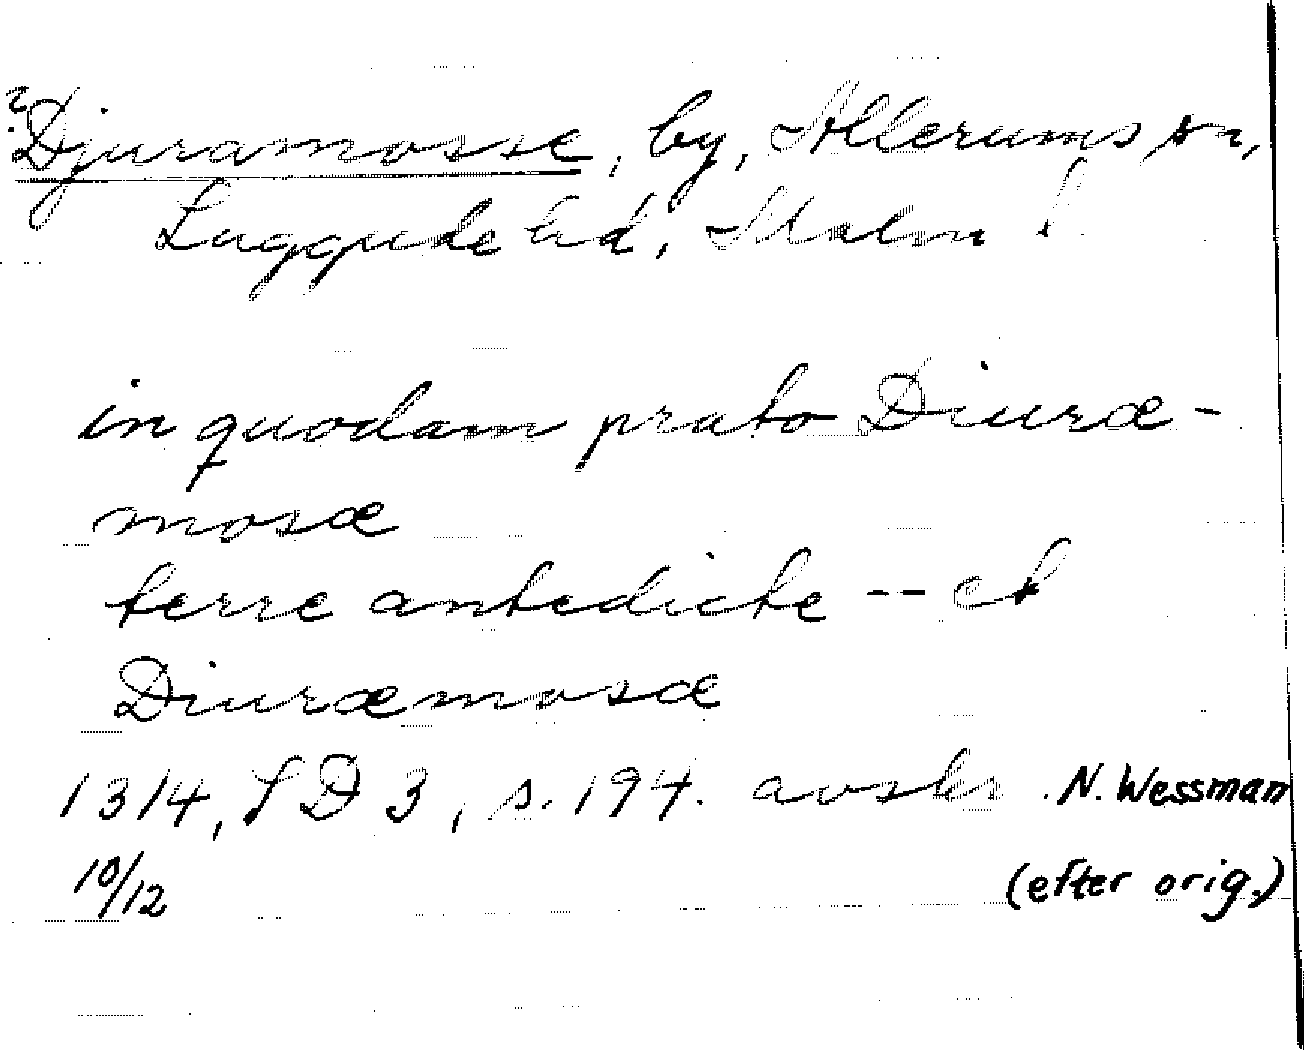 ? Djuramosse, by, Allerums sn,
Luggude hd, Malm l.
in quodam prato Diuræ-
mosæ
terre antedicte -- et
Diuræmosæ
1314, SD 3, s. 194. avskr. N. Wessman
10/12 (efter orig.)